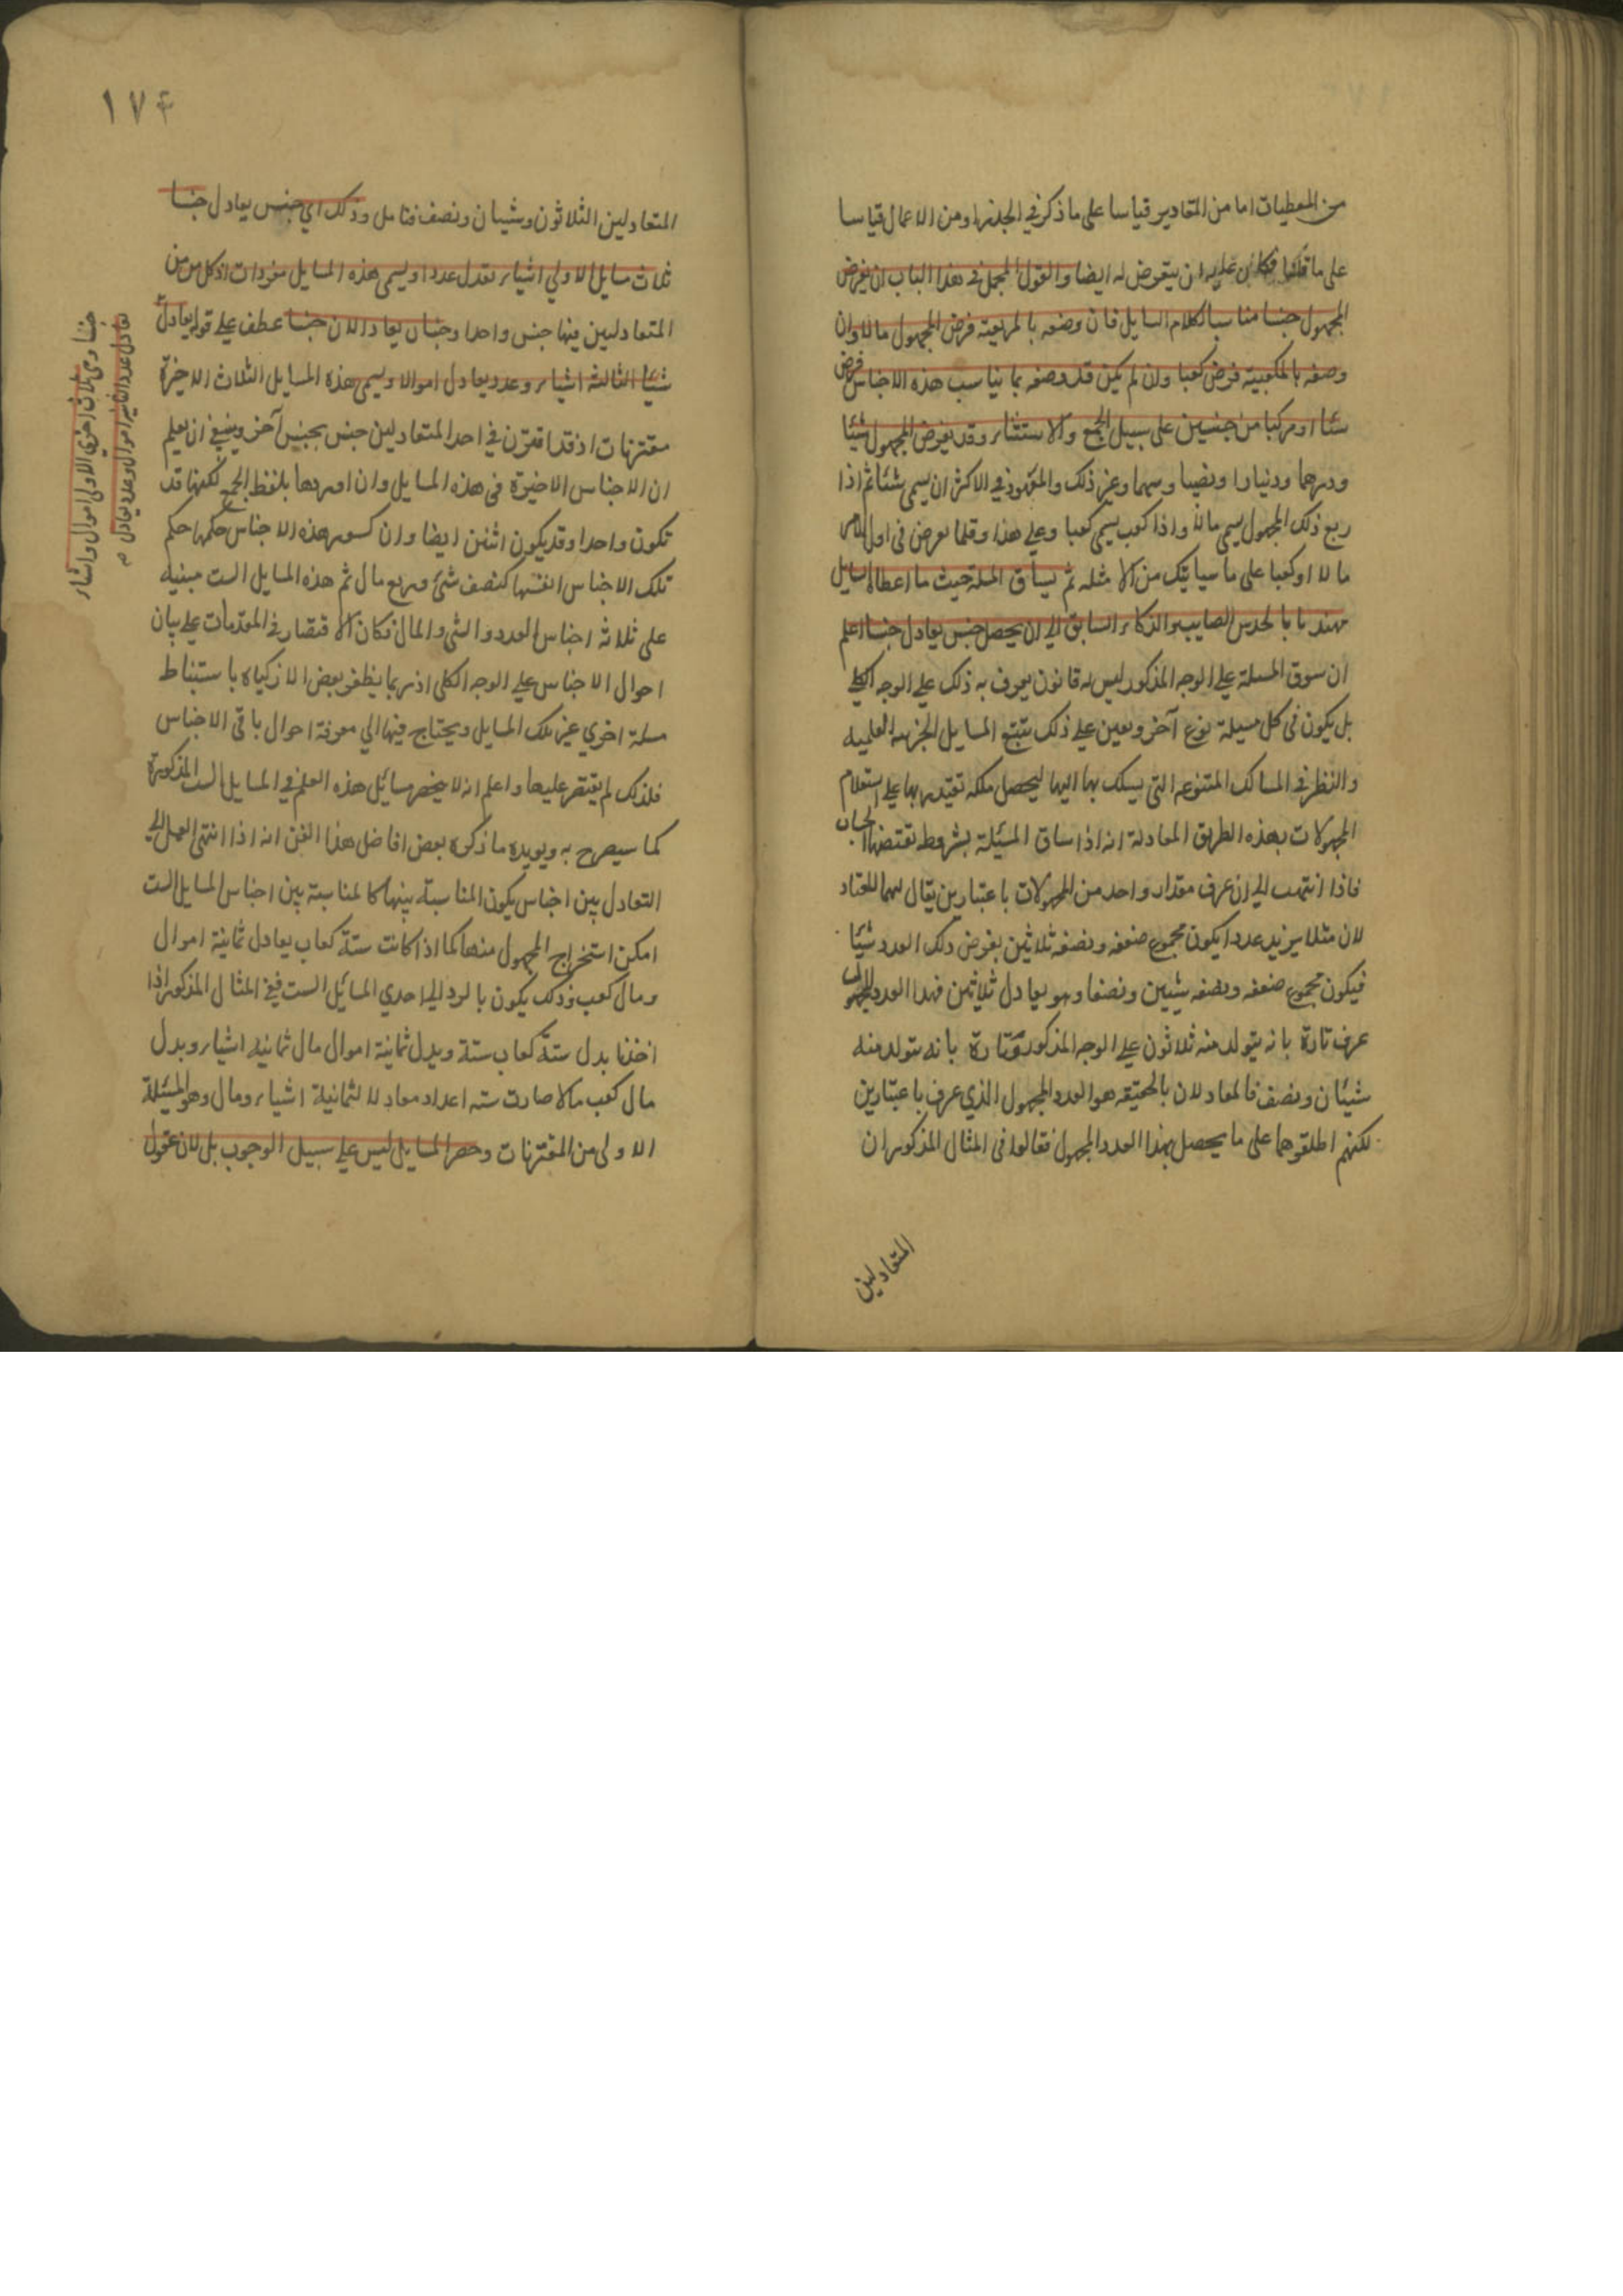 من المعطيات اما من المقادير قياسا على ما ذكر في الجذر او من الاعمال قياسا
على ما قلنا فكان عليه ان يتعرض له ايضا والقول المجمل في هذا الباب ان يفرض
المجهول جنسا مناسبا لكلام السايل فان وصفه بالمربعية فرض المجهول مالا وان
وصفه بالمكعبية فرض كعبا وان لم يكن قد وصفه بما يناسب هذه الاجناس فرض
شيئا او مركبا من جنسين على سبيل الجمع والاستثناء وقد يفرض المجهول شيئا
ودرهما ودينارا ونصيبا وسهما وغير ذلك والمعهود في الاكثر ان يسمى شيئا ثم اذا
ربع ذلك المجهول يسمى مالا واذا كعب يسمى كعبا وعلى هذا وقلما يعرض في اول الامر
مالا او كعبا على ما سياتيك من الامثله ثم يساق المسلة حيث ما اعطاه السايل
مهتديا بالحدس الصايب والذكاء السابق الى ان يحصل جنس يعادل جنسا اعلم
ان سوق المسلة على الوجه المذكور ليس له قانون يعرف به ذلك على الوجه الكلي
بل يكون في كل مسيلة نوع آخر ويعين على ذلك تتبع المسايل الجزييه العلميه
والنظر في المسالك المتنوعه التي يسلك بها اليها ليحصل ملكه تقتدر بها على استعلام
المجهولات بهذه الطريق المعادلة انه اذا ساق المسئلة بشروط تقتضيها الحساب
فاذا انتهت الى ان عرف مقدار واحد من المجهولات باعتبارين يقال لهما المتعاد
لان مثلا يزيد عددا يكون مجموع ضعفه ونصفه ثلاثين يفرض ذلك العدد شيئا
فيكون مجموع ضعفه ونصفه شيئين ونصفا وهو يعادل ثلاثين فهذا العدد المجهول
عرف تارة بانه يتولد منه ثلاثون على الوجه المذكور وتارة بانه يتولد منه
شيئان ونصف فالمعادلان بالحقيقه هو العدد المجهول الذي عرف باعتبارين
لكنهم اطلقوهما على ما يحصل بهذا العدد المجهول فقالوا في المثال المذكور ان
المتعادلين
١٧٤
المتعادلين الثلاثون وشيان ونصف فتامل وذلك اي جنس يعادل جنسا
ثلث مسايل الاولي اشياء تعدل عددا ويسمى هذه المسايل مفردات اذ كل من
المتعادلين فيها جنس واحد وجنسان يعادلان جنسا عطف على قوله يعادل
شيئا الثالثة اشياء وعدد يعادل اموالا ويسمى هذه المسايل الثلاث الاخيرة
مقترنات اذ قد اقترن في احد المتعادلين جنس بجنس آخر وينبغي ان يعلم
ان الاجناس الاخيرة في هذه المسايل وان اوردها بلفظ الجمع لكنها قد
تكون واحدا وقد يكون اثنين ايضا وان كسور هذه الاجناس حكمها حكم
تلك الاجناس انفسها كنصف شئ وربع مال ثم هذه المسايل الست مبنيه
على ثلاثه اجناس العدد والشي والمال فكان الاقتصار في المقدمات على بيان
احوال الاجناس على الوجه الكلي اذ ربما يظفر بعض الازكياء باستنباط
مسلة اخري غير تلك المسايل ويحتاج فيها الي معرفة احوال باقي الاجناس
فلذلك لم يقتصر عليها واعلم انه لا ينحصر مسائل هذه العلم في المسايل الست المذكورة
كما سيصرح به ويويده ما ذكره بعض افاضل هذا الفن انه اذا انتهى العمل الى
التعادل بين اجناس يكون المناسبة بينها كالمناسبة بين اجناس المسايل الست
امكن استخراج المجهول منها كما اذا كانت ستة كعاب يعادل ثمانية اموال
ومال كعب وذلك يكون بالرد الى احدي المسائل الست ففي المثال المذكور اذا
اخذنا بدل ستة كعاب ستة وبدل ثمانية اموال مال ثمانية اشياء وبدل
مال كعب مالا صارت سته اعداد معادلا لثمانية اشياء ومال وهو المسئلة
الاولى من المقترنات وحصر المسايل ليس على سبيل الوجوب بل لان عقول
جنسا وهي ثلاث اخري الاولى اموال واشياء
تعادل عددا الثانيه اموال وعدد يعادل